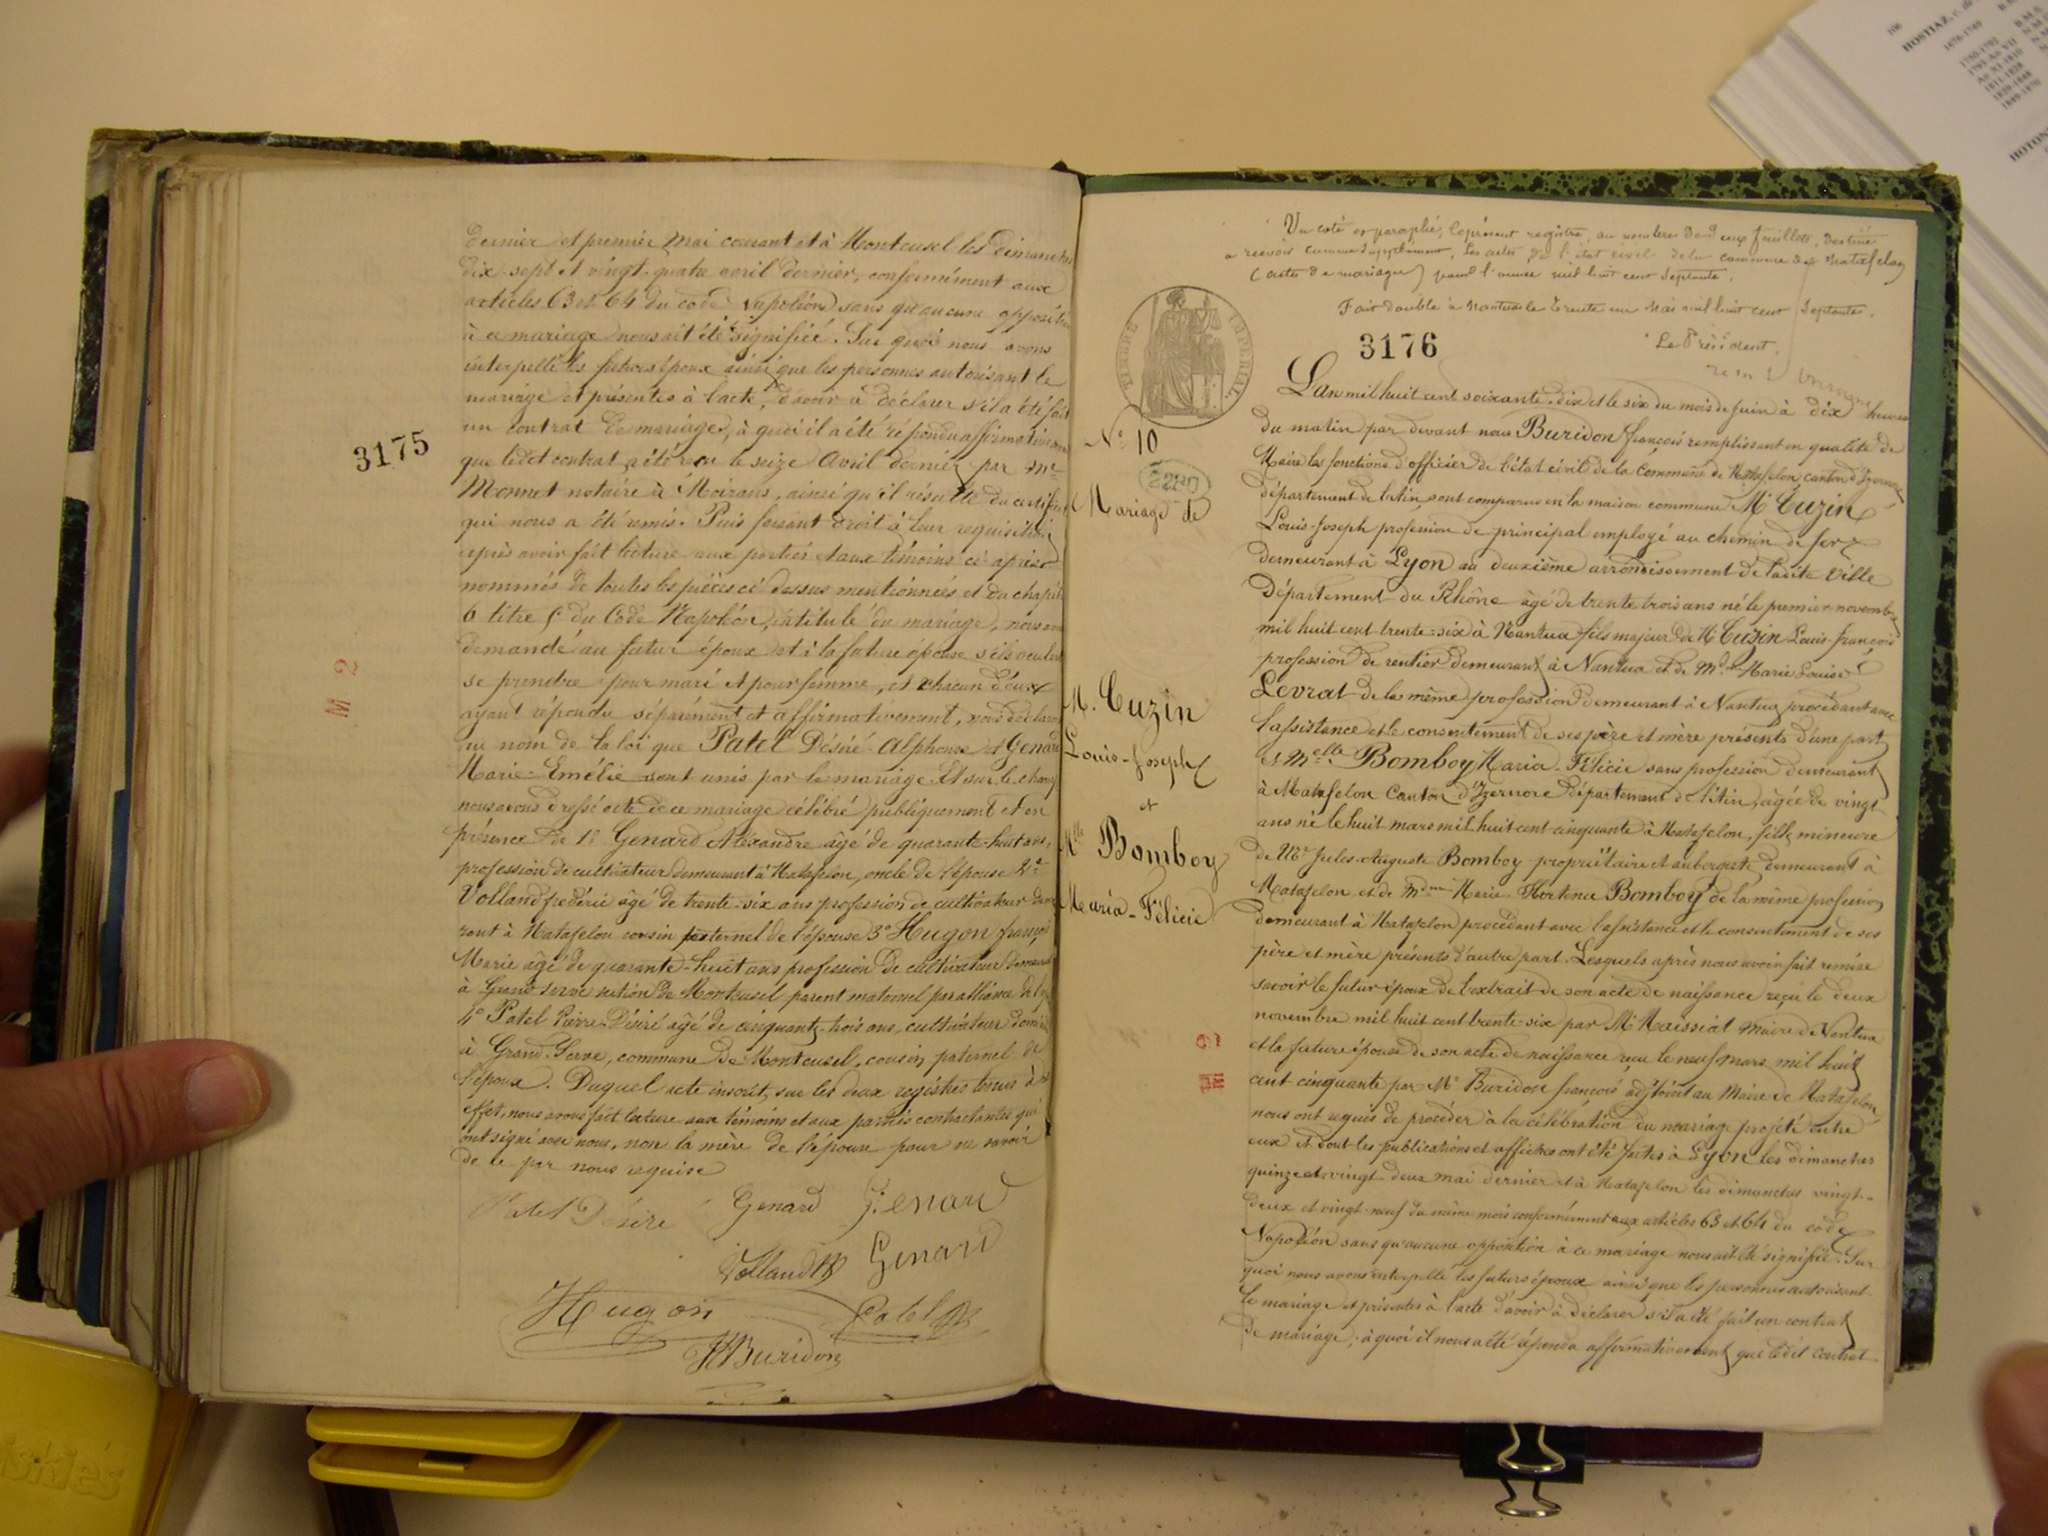 dernier et premier mai courant et à Montcusel les dimanches
dix-sept et vingt-quatre avril dernier, conformément aux
articles 63 et 64 du code Napoléon sans qu'aucune opposition
à ce mariage nous ait été signifiée. Sur quoi nous avons
interpellé les futurs époux ainsi que les personnes autorisant le
mariage et présentes à l'acte, d'avoir à déclarer s'il a été fait
un contrat de mariage, à quoi il a été répondu affirmativement
3175
que ledit contrat a été reçu le seize Avril dernier par Me
Monnet notaire à Moirans, ainsi qu'il résulte du certificat
qui nous a été remis. Puis faisant droit à leur requisition
après avoir fait lecture aux parties et aux témoins ci-après
nommés de toutes les pièces ci dessus mentionnées et du chapitre
6 titre 5 du Code Napoléon, intitulé du mariage, nous avons
demandé au futur époux et à la future épouse s'ils veulent
se prendre pour mari et pour femme, et chacun d'eux
M 2
ayant répondu séparément et affirmativement, nous déclarons
au nom de la loi que Patel Désiré-Alphonse et Genard
Marie-Emélie sont unis par le mariage. Et sur le champ
nous avons dressé acte de ce mariage célébré publiquement et en
présence de 1° Genard Alexandre âgé de quarante-huit ans,
profession de cultivateur demeurant à Matafelon, oncle de l'épouse 2°
Volland frédéric âgé de trente-six ans profession de cultivateur demeu
rant à Matafelon cousin paternel de l'épouse 3° Hugon françois
Marie âgé de quarante-huit ans profession de cultivateur demeurant
à Grand Serve section de Montcusel parent maternel par alliance de
4° Patel Pierre-Désiré âgé de cinquante-trois ans, cultivateur
à Grand-Serve, commune de Montcusel, cousin paternel de
l'époux. Duquel acte inscrit, sur les deux registres tenus à cet
effet, nous avons fait lecture aux témoins et aux parties contractantes qui
ont signé avec nous, non la mère de l'épouse pour ne savoir
de ce par nous requise
Patel Désiré Genard Genard
Volland Genard
Hugon Patel
Buridon
Vu coté et paraphé, le présent registre, au nombre de deux feuillets, destiné
a recevoir comme supplément, les actes de l'état civil de la commune de Matafelon
(actes de mariages) pour l'année mil huit cent septante.
Fait double à Nantua le trente un Mai mil huit cent septante.
Le Président.
TIMBRE IMPERIAL
3176
N° 10
Mariage de
M. Cuzin
Louis-Joseph
et
Mlle Bomboy
Maria-Félicie
L'an mil huit cent soixante-dix et le six du mois de Juin à dix heures
du matin par devant nous Buridon françois remplissant en qualité de
Maire les fonctions d'officier de l'état civil de la Commune de Matafelon, canton d'Izernore
département de l'Ain, sont comparus en la maison commune Mr Cuzin
Louis-Joseph profession de principal employé au chemin de fer
demeurant à Lyon au deuxième arrondissement de ladite Ville
Département du Rhône âgé de trente trois ans né le premier novembre
mil huit cent trente-six à Nantua fils majeur de M Cuzin Louis-françois
profession de rentier demeurant à Nantua et de Mde Marie Louise
Levrat de la même profession demeurant à Nantua procédant avec
l'assistance et le consentement de ses père et mère présents d'une part
et Melle Bomboy Maria-Félicie sans profession demeurant
à Matafelon Canton d'Izernore département de l'Ain, âgée de vingt
ans né le huit mars mil huit cent cinquante à Matafelon, fille mineure
de Mr Jules-Auguste Bomboy propriétaire et aubergiste demeurant à
Matafelon et de Mme Marie Hortense Bomboy de la même profession
demeurant à Matafelon procédant avec l'assistance et le consentement de ses
père et mère présents d'autre part. Lesquels après nous avoir fait remise
savoir le futur époux de l'extrait de son acte de naissance reçu le deux
novembre mil huit cent trente-six par Mr Maissiat maire de Nantua
et la future épouse de son acte de naissance reçu le neuf mars mil huit
cent cinquante par Mr Buridon françois adjoint au Maire de Matafelon
nous ont requis de procéder à la célébration du mariage projeté entre
eux et dont les publications et affiches ont été faites à Lyon les dimanches
quinze et vingt-deux mai dernier et à Matafelon les dimanches vingt-
deux et vingt-neuf du même mois conformément aux articles 63 et 64 du code
Napoléon sans qu'aucune opposition à ce mariage nous ait été signifiée. Sur
quoi nous avons interpellé les futurs époux ainsi que les personnes autorisant
le mariage et présentes à l'acte d'avoir à déclarer s'il a été fait un contrat
de mariage, à quoi il nous a été répondu affirmativement que ledit contrat